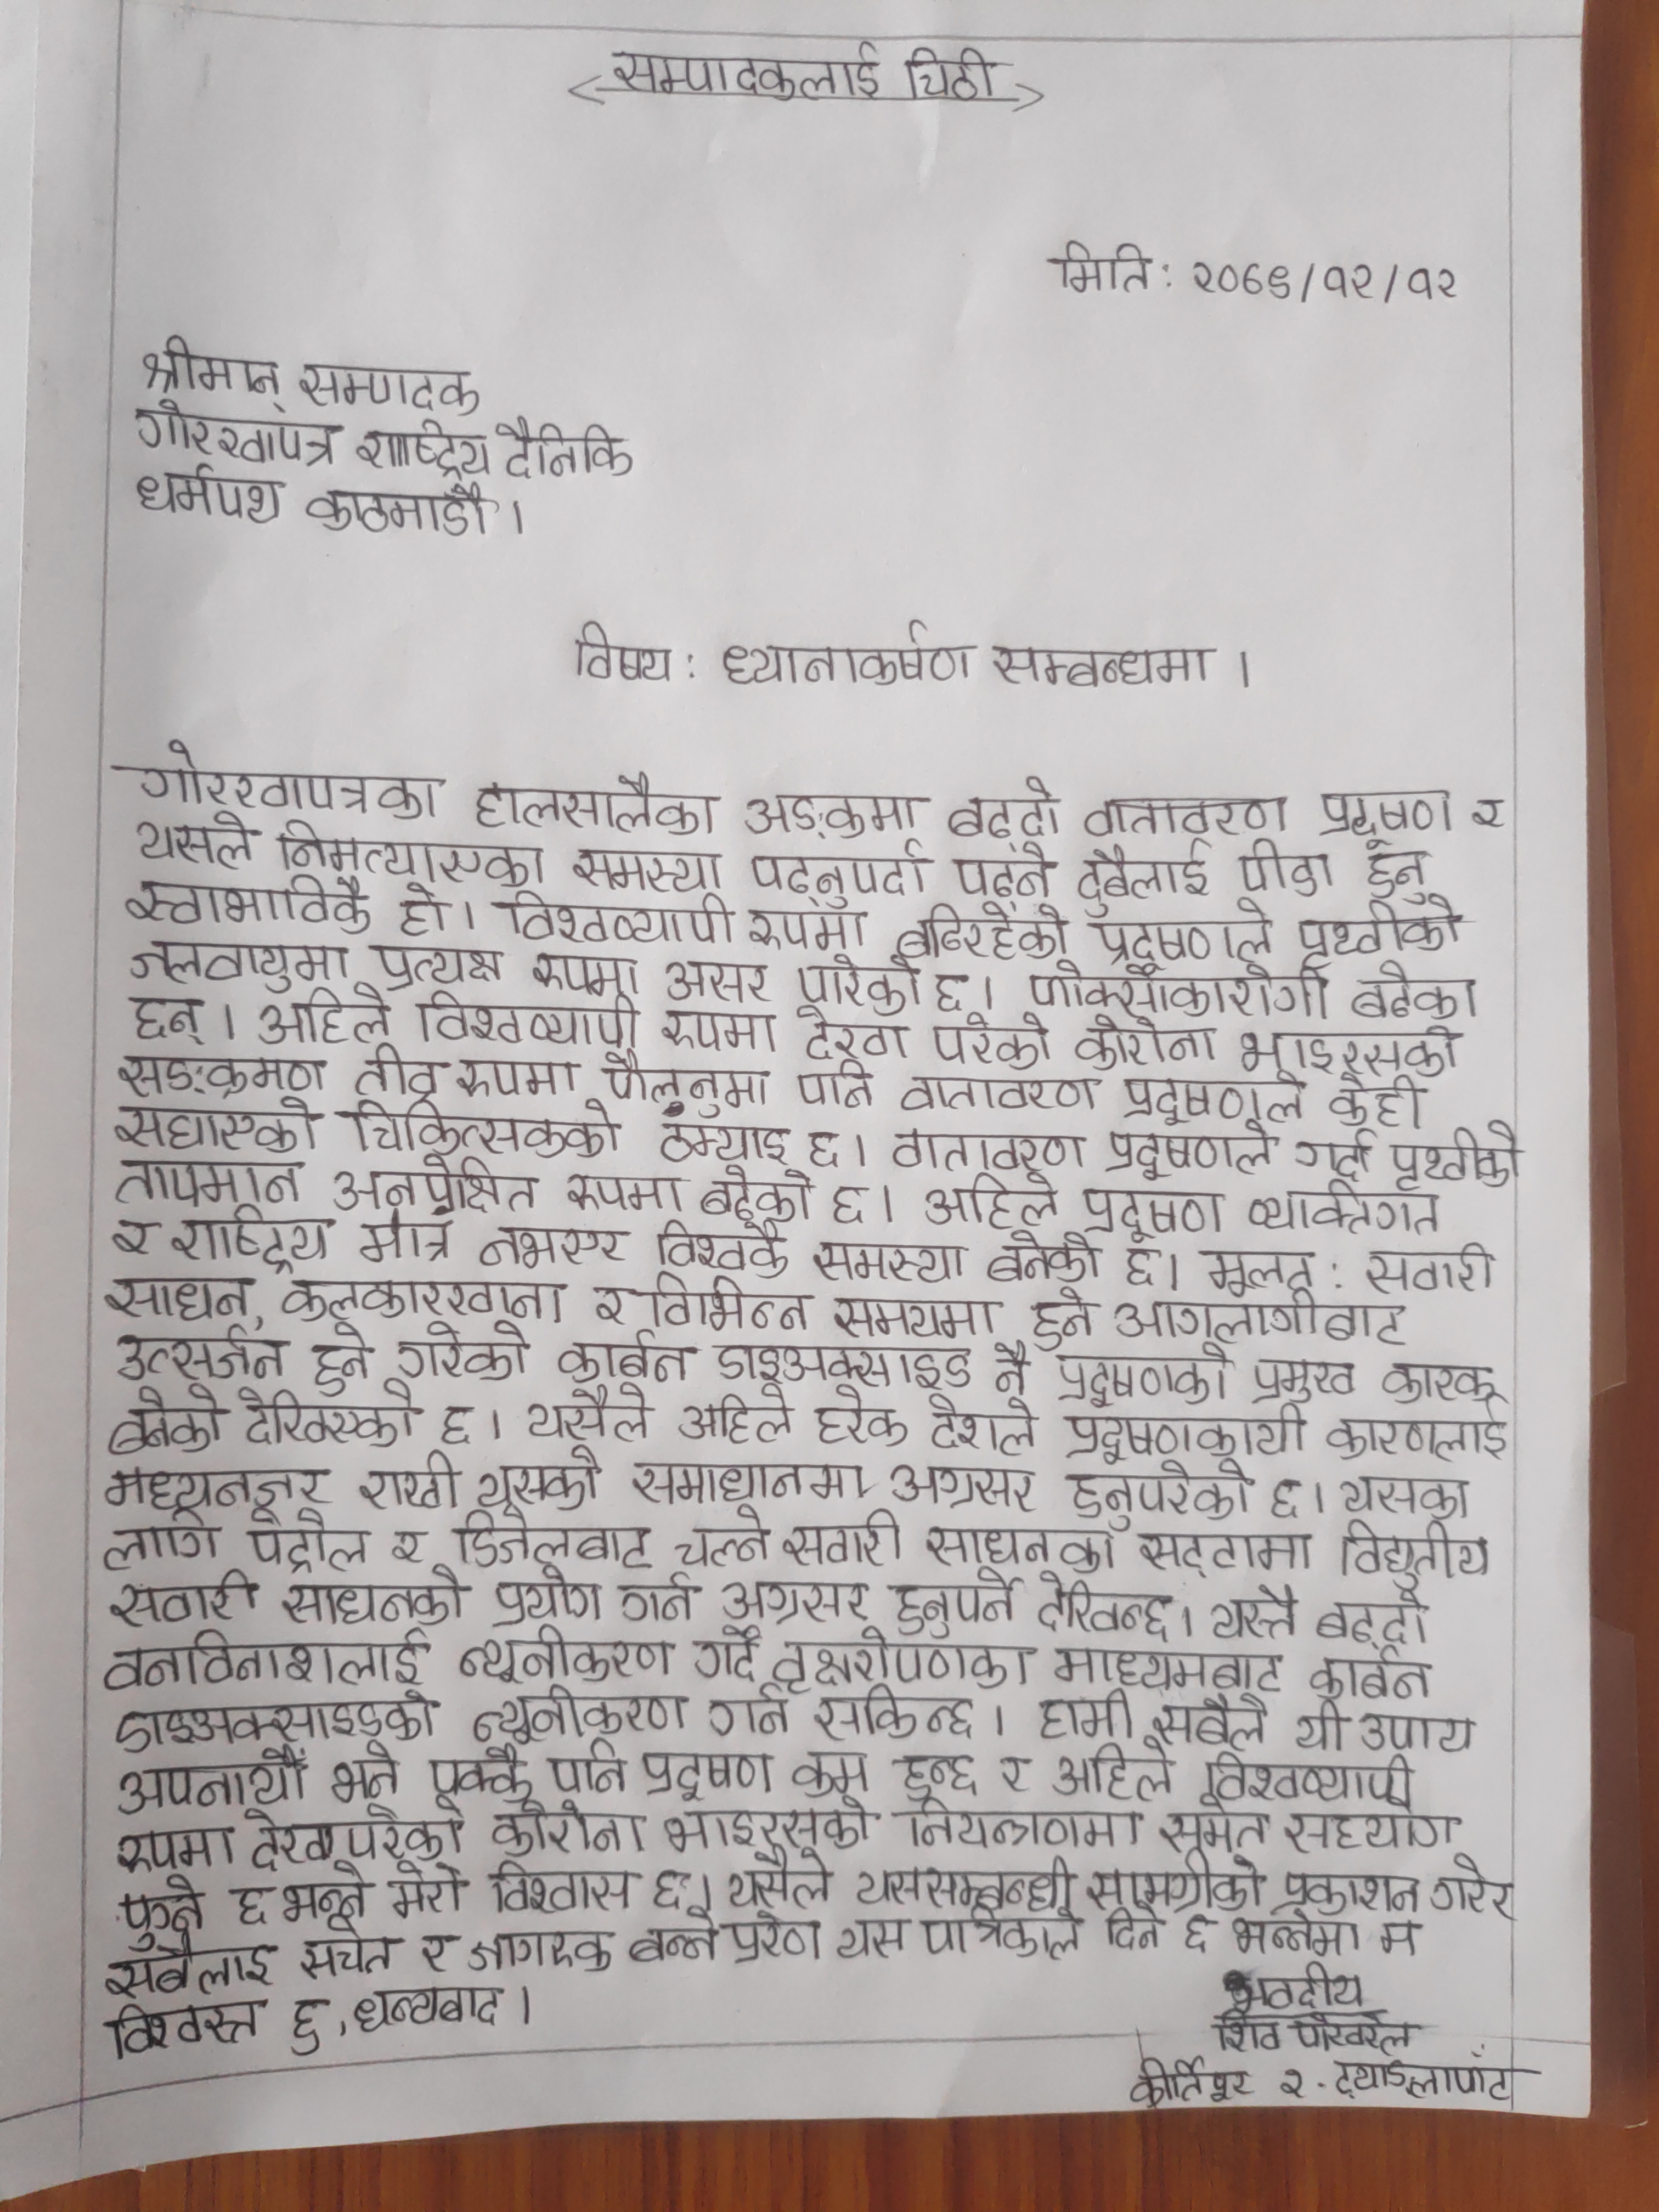 सम्पादकलाई चिठी
मिति: २०७६/१२/१२
श्रीमान् सम्पादक
गोरखापत्र राष्ट्रिय दैनिकि
धर्मपथ काठमाडौं ।
विषय: ध्यानाकर्षण सम्बन्धमा ।
गोरखापत्रका हालसालैका अङ्कमा बढ्दो वातावरण प्रदूषण र
यसले निम्त्याएका समस्या पढ्नुपर्दा पढ्ने दुबैलाई पीडा हुनु
स्वाभाविकै हो । विश्वव्यापी रुपमा बढिरहेको प्रदूषणले पृथ्वीको
जलवायुमा प्रत्यक्ष रुपमा असर पारेको छ । फोक्सोकारोगी बढेका
छन् । अहिले विश्वव्यापी रुपमा देखा परेको कोरोना भाइरसको
सङ्क्रमण तीव्र रुपमा फैलनुमा पनि वातावरण प्रदूषणले केही
सघाएको चिकित्सकको ठम्याइ छ । वातावरण प्रदूषणले गर्दा पृथ्वीको
तापमान अनपेक्षित रुपमा बढेको छ । अहिले प्रदूषण व्यक्तिगत
र राष्ट्रिय मात्र नभएर विश्वकै समस्या बनेको छ । मूलत: सवारी
साधन, कलकारखाना र विभिन्न समयमा हुने आगलागीबाट
उत्सर्जन हुने गरेको कार्बन डाइअक्साइड नै प्रदूषणको प्रमुख कारक
बनेको देखिएको छ । यसैले अहिले हरेक देशले प्रदूषणकायी कारणलाई
मध्यनजर राखी यसको समाधानमा अग्रसर हुनुपरेको छ । यसका
लागि पेट्रोल र डिजेलबाट चल्ने सवारी साधनका सट्टामा विद्युतीय
सवारी साधनको प्रयोग गर्न अग्रसर हुनुपर्ने देखिन्छ । यस्तै बढ्दो
वनविनाशलाई न्यूनीकरण गर्दै वृक्षरोपणका माध्यमबाट कार्बन
डाइअक्साइडको न्यूनीकरण गर्न सकिन्छ । हामी सबैले यी उपाय
अपनायौं भने पक्कै पनि प्रदूषण कम हुन्छ र अहिले विश्वव्यापी
रुपमा देखापरेको कोरोना भाइरसको नियन्त्रणमा समेत सहयोग
पुग्ने छ भन्ने मेरो विश्वास छ । यसैले यससम्बन्धी सामग्रीको प्रकाशन गरेर
सबैलाइ सचेत र जागरुक बन्न प्ररेणा यस पत्रिकाले दिने छ भन्नेमा म
विश्वस्त छु, धन्यबाद ।
भवदीय
शिव पोखरेल
कीर्तिपुर २.